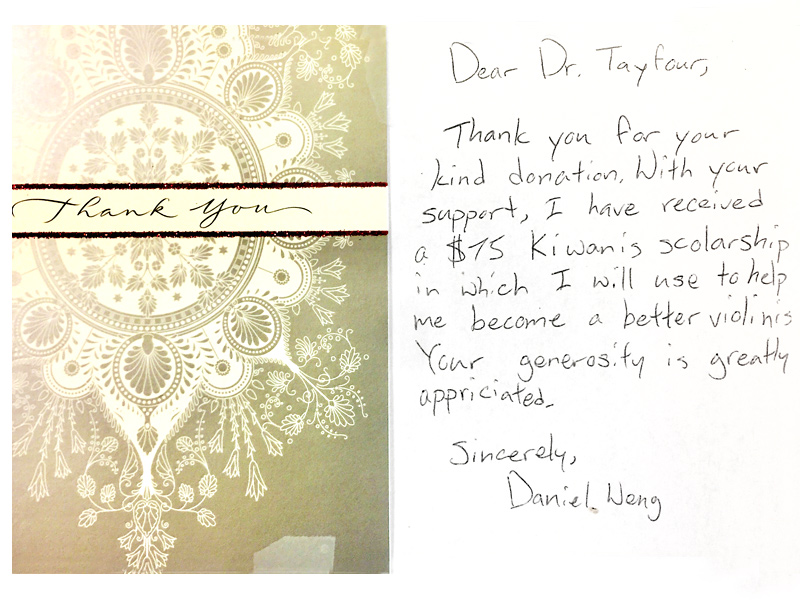 Thank You
Dear Dr. Tayfour,
Thank you for your
kind donation. With your
support, I have received
a $75 Kiwanis scolarship
in which I will use to help
me become a better violinis
Your generosity is greatly
appriciated.
Sincerely,
Daniel Weng